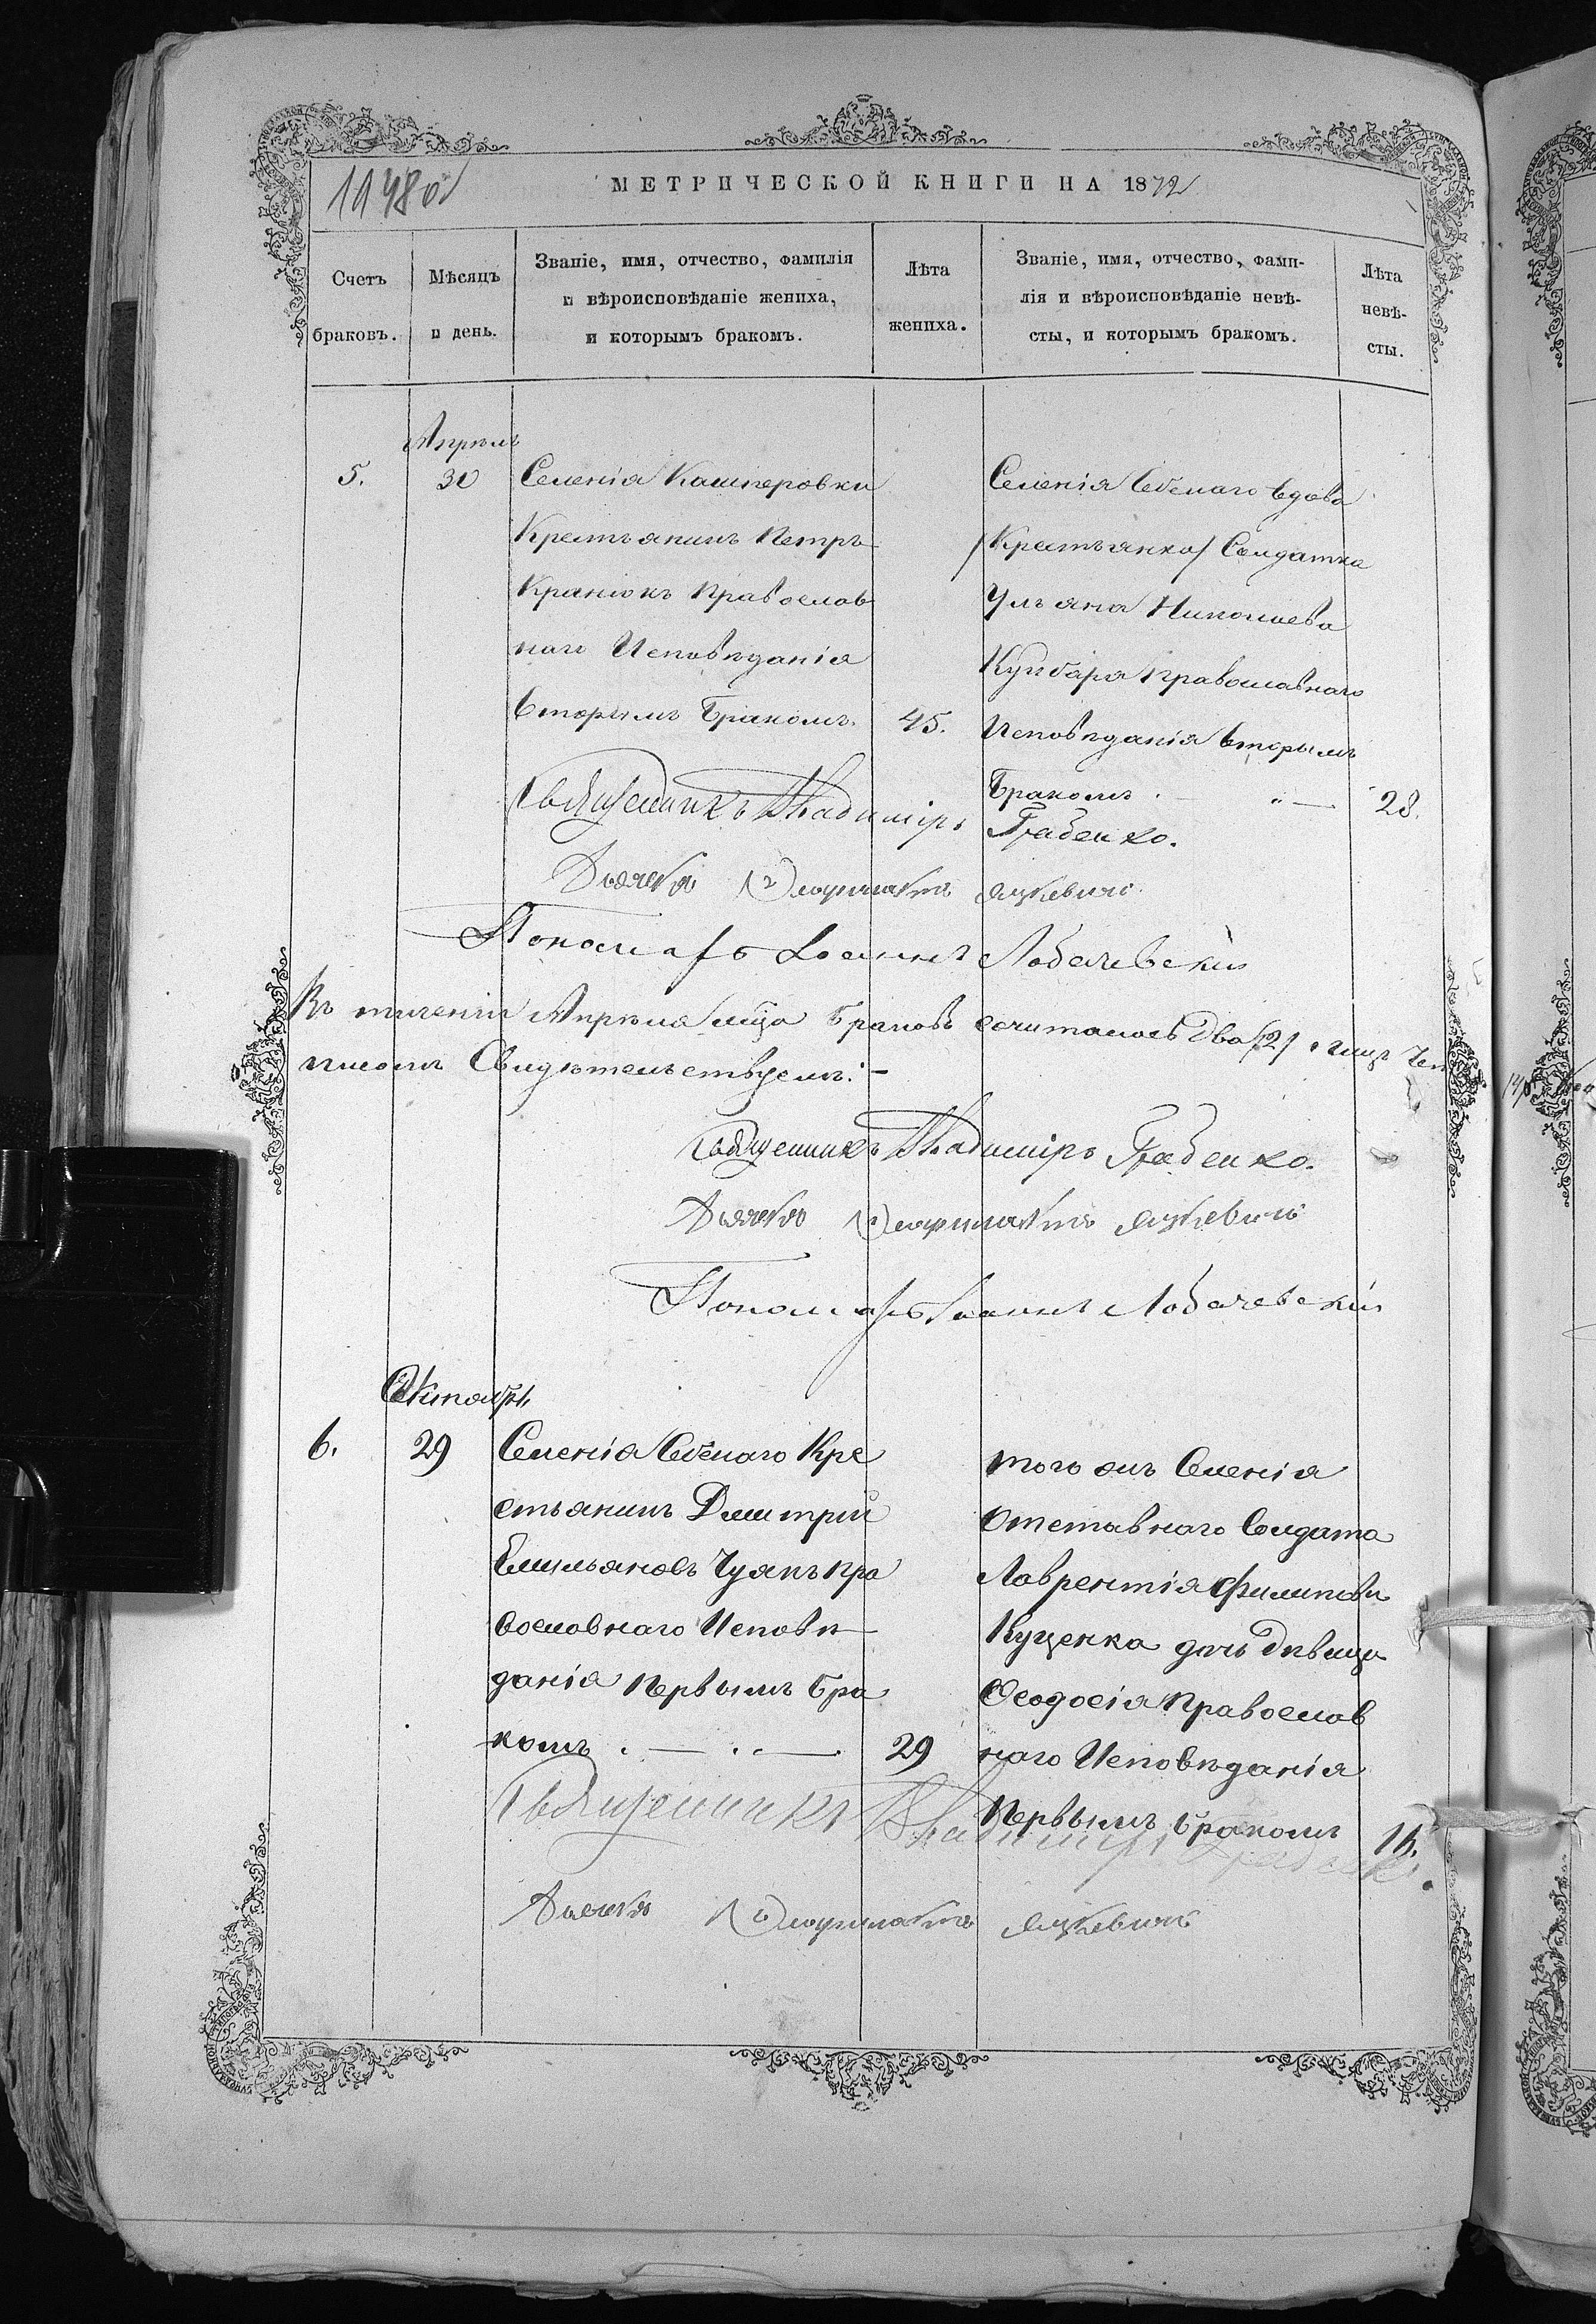 МЕТРИЧЕСКОЙ КНИГИ НА 1872
1148об
Счетъ браковъ.
Мѣсяцъ и день.
Званіе, имя, отчество, фамилія
и вѣроисповѣданіе жениха,
и которымъ бракомъ.
Лѣта жениха.
Званіе, имя, отчество, фами-
лія и вѣроисповѣданіе невѣ-
сты, и которымъ бракомъ.
Лѣта невѣ-
сты.
Апрѣль
5.
30
Селенія Кашперовки
Крестьянинъ Петръ
Кранюкъ Православ
наго Исповѣданія
вторымъ Бракомъ.
45.
Селенія вдова
/Крестьянка/ Солдатка
Ульяна Николаева
Православнаго
Исповѣданія вторымъ
Бракомъ
28.
Священникъ Владиміръ Грабенко.
Дьячекъ Яцкевичъ
Пономарь Іоаннъ Лобачевскій
Въ теченіи Апрѣля мца Браковъ считалось два /2/
писомъ Свидѣтельствуемъ:
Священникъ Владиміръ Грабенко.
Дьячекъ Яцкевичъ
Пономарь Іоаннъ Лобачевскій
Октябрь
6.
29
Селенія Кре
стьянинъ Дмитрій
Емильяновъ Пра
вославнаго Исповѣ
данія Первымъ бра
комъ
29
того жъ Селенія
Отставнаго Солдата
Лаврентія Филипова
Куценка дочь дѣвица
Ѳеодосія Православ
наго Исповѣданія
Первымъ бракомъ
16.
Священникъ Владиміръ Грабенко.
Дьячекъ Яцкевичъ